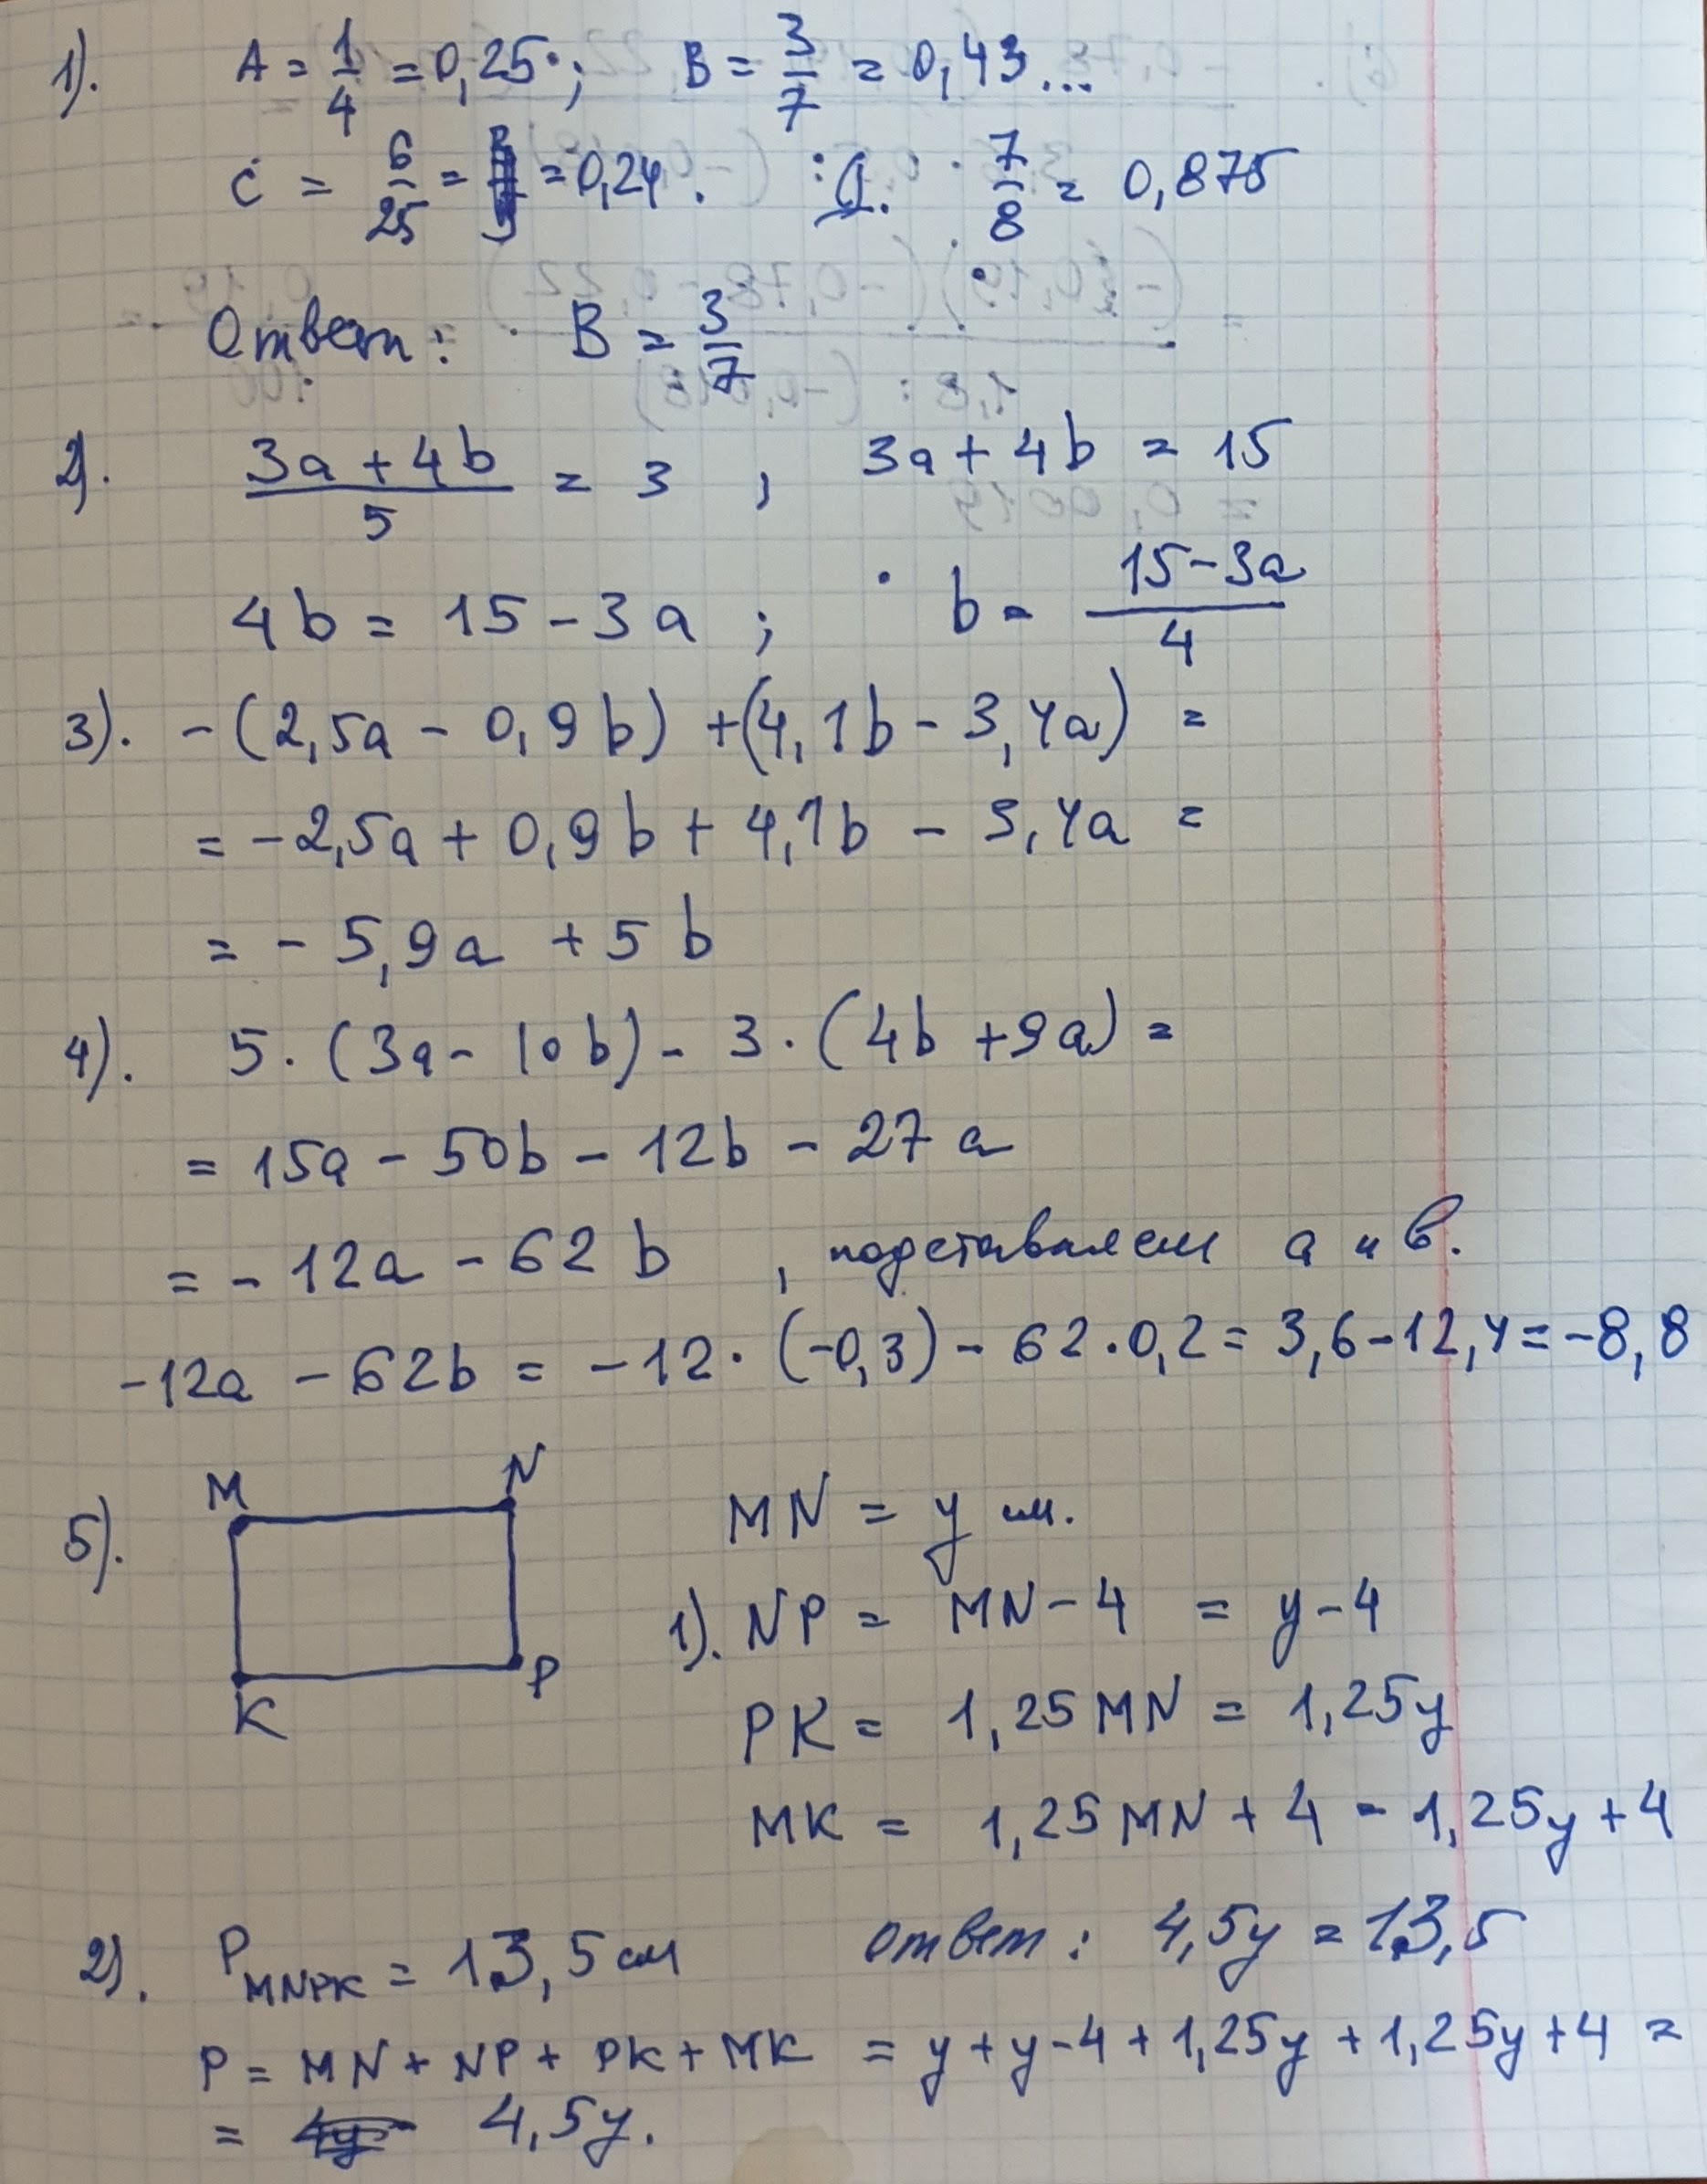 1). A = 1/4 = 0,25; B = 3/7 = 0,43...
C = 6/25 = = 0,24. D. 7/8 = 0,875
Ответ: B = 3/7
2). (3a + 4b)/5 = 3, 3a + 4b = 15
4b = 15 - 3a; b = (15 - 3a)/4
3). -(2,5a - 0,9b) + (4,1b - 3,4a) =
= -2,5a + 0,9b + 4,1b - 3,4a =
= - 5,9a + 5b
4). 5 · (3a - 10b) - 3 · (4b + 9a) =
= 15a - 50b - 12b - 27a
= - 12a - 62b, подставляем a и b.
-12a - 62b = -12 · (-0,3) - 62 · 0,2 = 3,6 - 12,4 = -8,8
5). M N
K P
MN = y см.
1). NP = MN - 4 = y - 4
PK = 1,25MN = 1,25y
MK = 1,25MN + 4 = 1,25y + 4
2). P MNPK = 13,5 см ответ: 4,5y = 13,5
P = MN + NP + PK + MK = y + y - 4 + 1,25y + 1,25y + 4 =
= 4,5y.